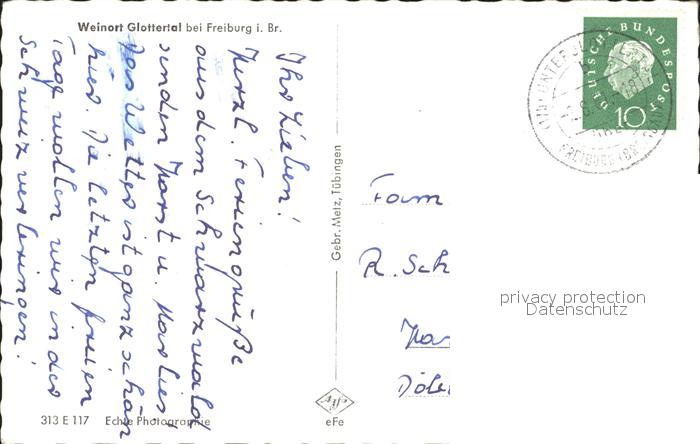 Weinort Glottertal bei Freiburg i. Br.
Ihr Lieben!
Herzl. Feriengrüße
aus dem Schwarzwald
senden Horst u. Marlies
Das Wetter ist ganz schön
hier. Die letzten freien
Tage wollen wir in der
Schweiz verbringen!
313 E 117 Echte Photographie
Gebr. Metz, Tübingen
eFe
DEUTSCHE BUNDESPOST
10
UNTER
FREIBURG (BR
Fam
R. Sch
privacy protection
Datenschutz